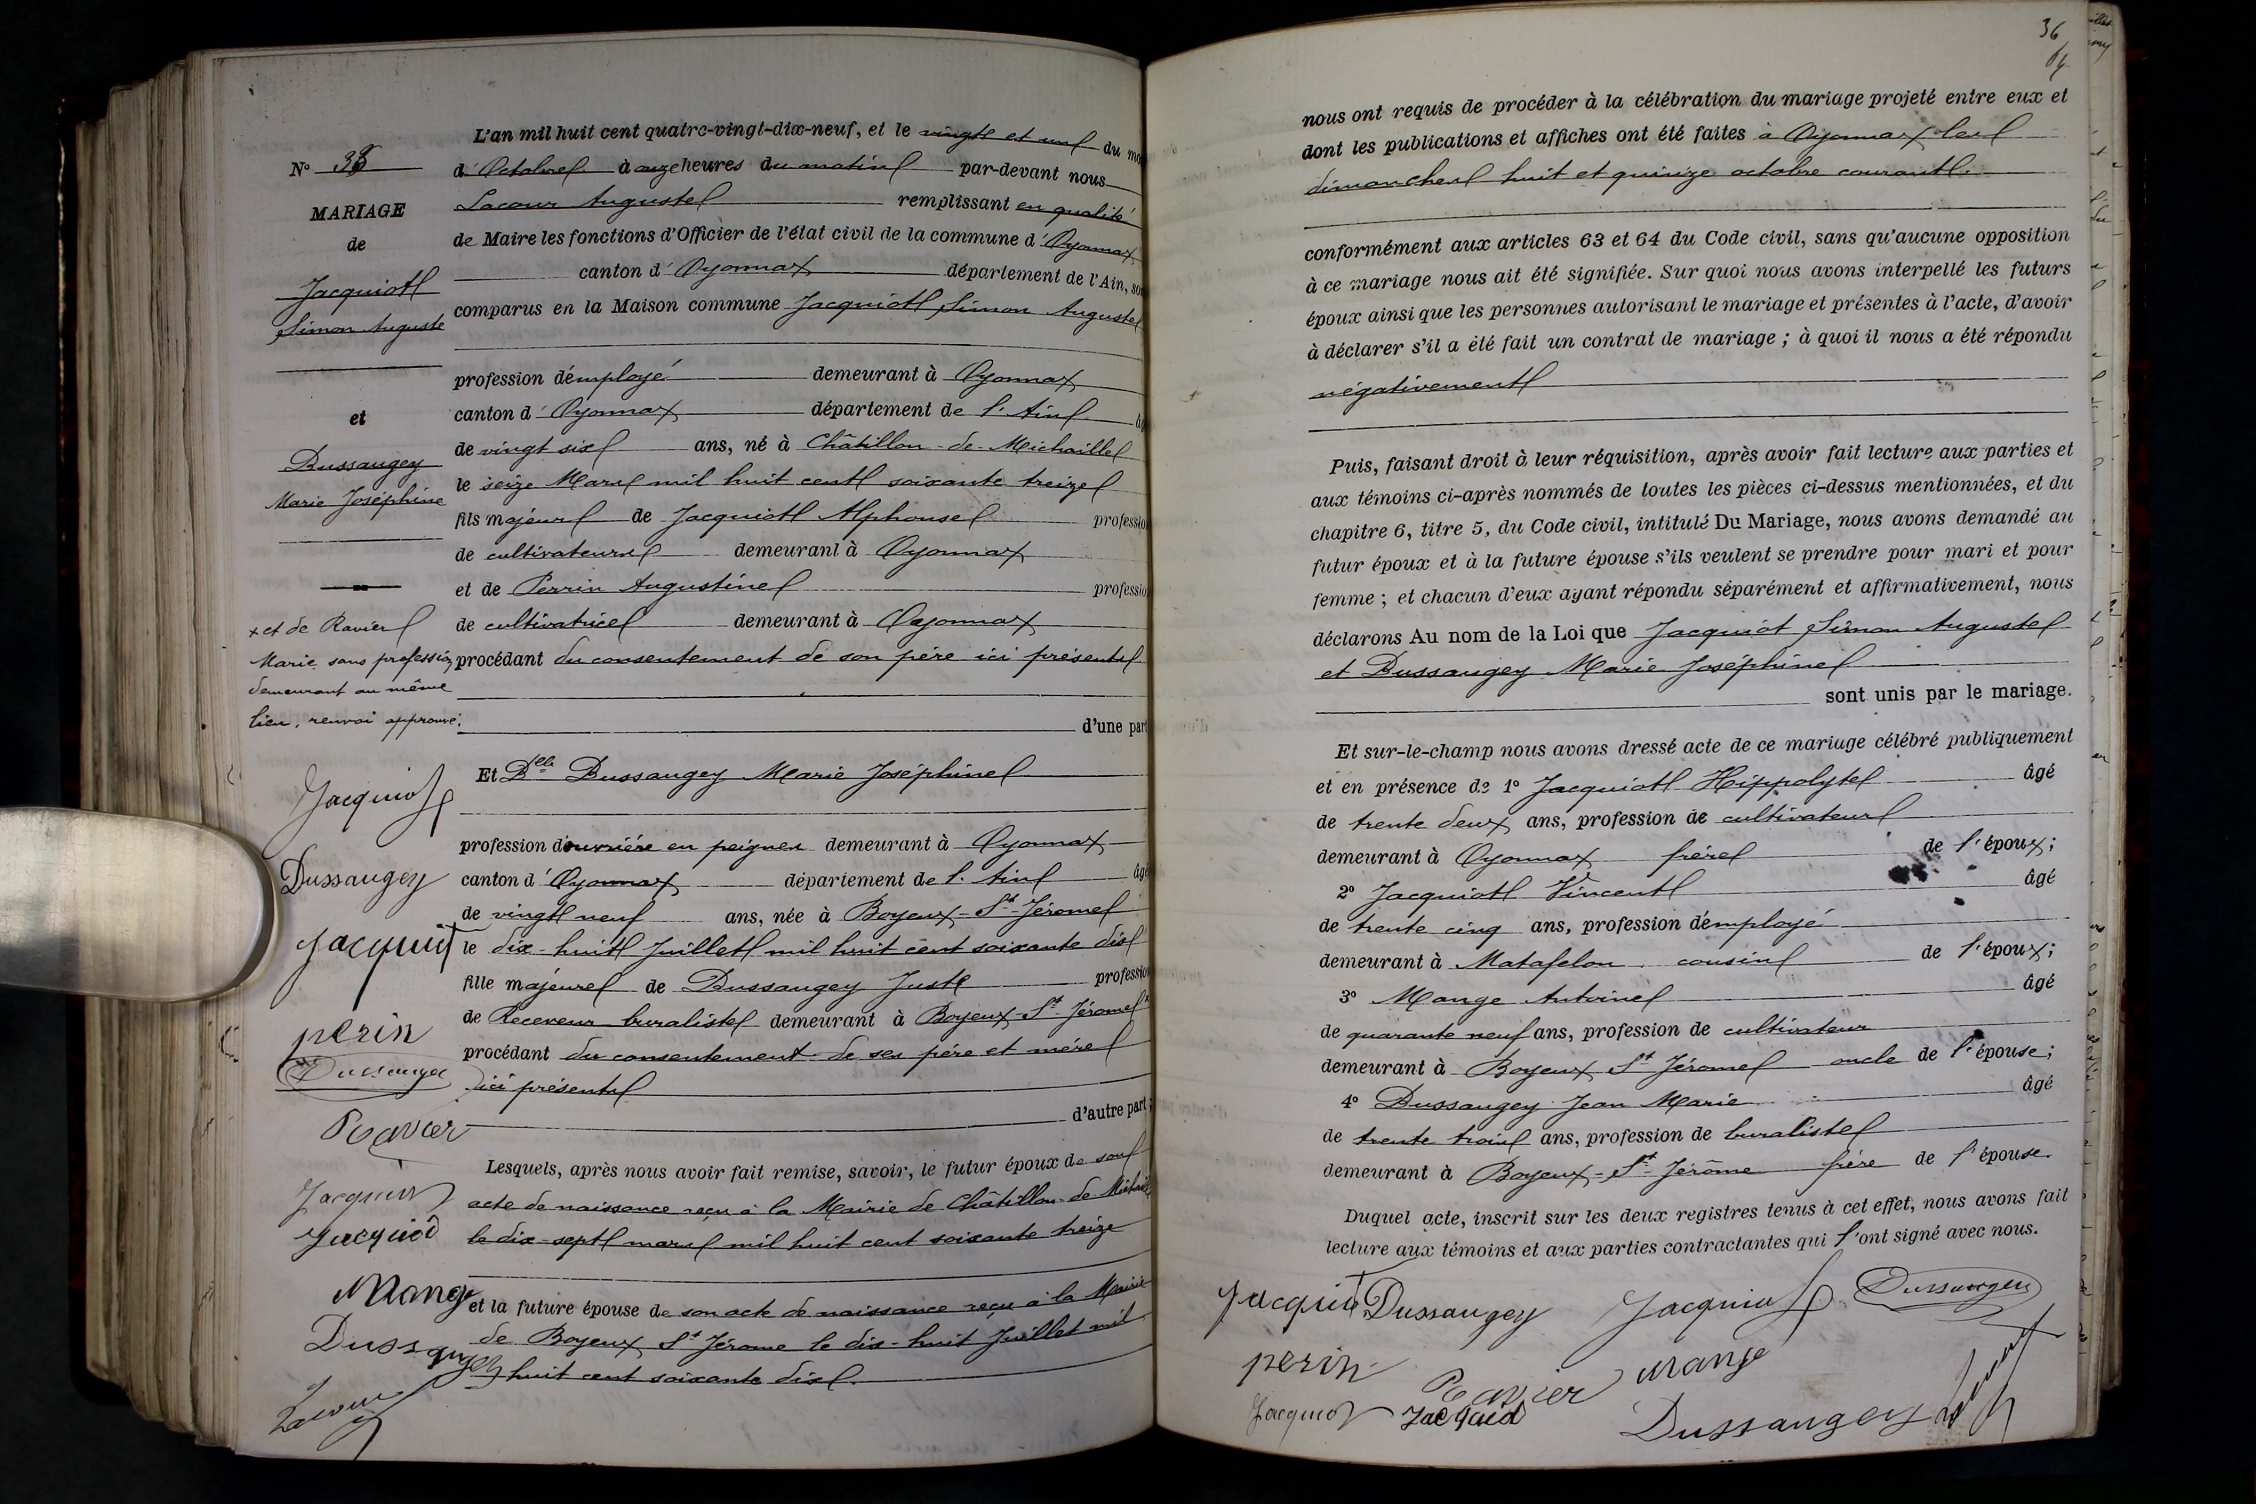 N° 35
MARIAGE
de
Jacquiot
Simon Auguste
et
Dussaugey
Marie Joséphine
+ et de Ravier
Marie, sans profession
demeurant au même
lieu, renvoi approuvé.
Jacquiot
Dussaugey
Jacquiot
perin
Dussaugey
Ravier
Jacquiot
Jacquiod
Mange
Dussaugey
Lacour
L'an mil huit cent quatre-vingt-dix-neuf, et le vingt et un du mo
d'Octobre à onze heures du matin par-devant nous
Lacour Auguste remplissant en qualité
de Maire les fonctions d'Officier de l'état civil de la commune d'Oyonnax
canton d'Oyonnax département de l'Ain, son
comparus en la Maison commune Jacquiot Simon Auguste
profession d'employé demeurant à Oyonnax
canton d'Oyonnax département de l'Ain âg
de vingt six ans, né à Châtillon-de-Michaille
le seize Mars mil huit cent soixante treize
fils majeur de Jacquiot Alphonse profession
de cultivateurs demeurant à Oyonnax
et de Perrin Augustine profession
de cultivatrice demeurant à Oyonnax
procédant du consentement de son père ici présents
d'une part
Et Delle Dussaugey Marie Joséphine
profession d'ouvrière en peignes demeurant à Oyonnax
canton d'Oyonnax département de l'Ain âgé
de vingt neuf ans, née à Boyeux-St-Jérome
le dix-huit Juillet mil huit cent soixante dix
fille majeure de Dussaugey Juste profession
de Receveur buraliste demeurant à Boyeux-St-Jérome +
procédant du consentement de ses père et mère
ici présents
d'autre part;
Lesquels, après nous avoir fait remise, savoir, le futur époux de son
acte de naissance reçu à la Mairie de Châtillon-de-Michaille
le dix-sept mars mil huit cent soixante treize
et la future épouse de son acte de naissance reçu à la Mairie
de Boyeux St Jérome le dix-huit Juillet mil
huit cent soixante dix.
36
nous ont requis de procéder à la célébration du mariage projeté entre eux et
dont les publications et affiches ont été faites à Oyonnax les
dimanches huit et quinze octobre courant.
conformément aux articles 63 et 64 du Code civil, sans qu'aucune opposition
à ce mariage nous ait été signifiée. Sur quoi nous avons interpellé les futurs
époux ainsi que les personnes autorisant le mariage et présentes à l'acte, d'avoir
à déclarer s'il a été fait un contrat de mariage; à quoi il nous a été répondu
négativement
Puis, faisant droit à leur réquisition, après avoir fait lecture aux parties et
aux témoins ci-après nommés de toutes les pièces ci-dessus mentionnées, et du
chapitre 6, titre 5, du Code civil, intitulé Du Mariage, nous avons demandé au
futur époux et à la future épouse s'ils veulent se prendre pour mari et pour
femme; et chacun d'eux ayant répondu séparément et affirmativement, nous
déclarons Au nom de la Loi que Jacquiot Simon Auguste
et Dussaugey Marie Joséphine
sont unis par le mariage.
Et sur-le-champ nous avons dressé acte de ce mariage célébré publiquement
et en présence de 1° Jacquiot Hippolyte âgé
de trente deux ans, profession de cultivateur
demeurant à Oyonnax frère de l'époux;
2° Jacquiot Vincent âgé
de trente cinq ans, profession d'employé
demeurant à Matafelon cousin de l'époux;
3° Mange Antoine âgé
de quarante neuf ans, profession de cultivateur
demeurant à Boyeux St Jérome oncle de l'épouse;
4° Dussaugey Jean Marie âgé
de trente trois ans, profession de buraliste
demeurant à Boyeux-St-Jérôme frère de l'épouse.
Duquel acte, inscrit sur les deux registres tenus à cet effet, nous avons fait
lecture aux témoins et aux parties contractantes qui l'ont signé avec nous.
Jacquiot Dussaugey Jacquiot Dussaugey
perin Ravier mange
Jacquiot Jacquiod Dussaugey Lacour